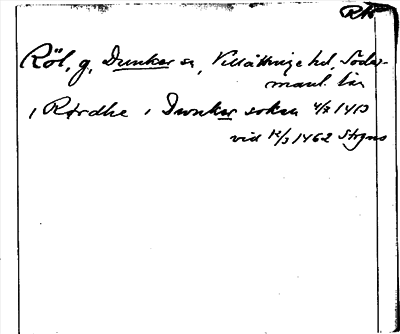 Röl, g, Dunker sn, Villåttinge hd, Söder-
manl. län
i Rørdhe i Dunker sokn 4/7 1413
vid 12/3 1462 Strgns